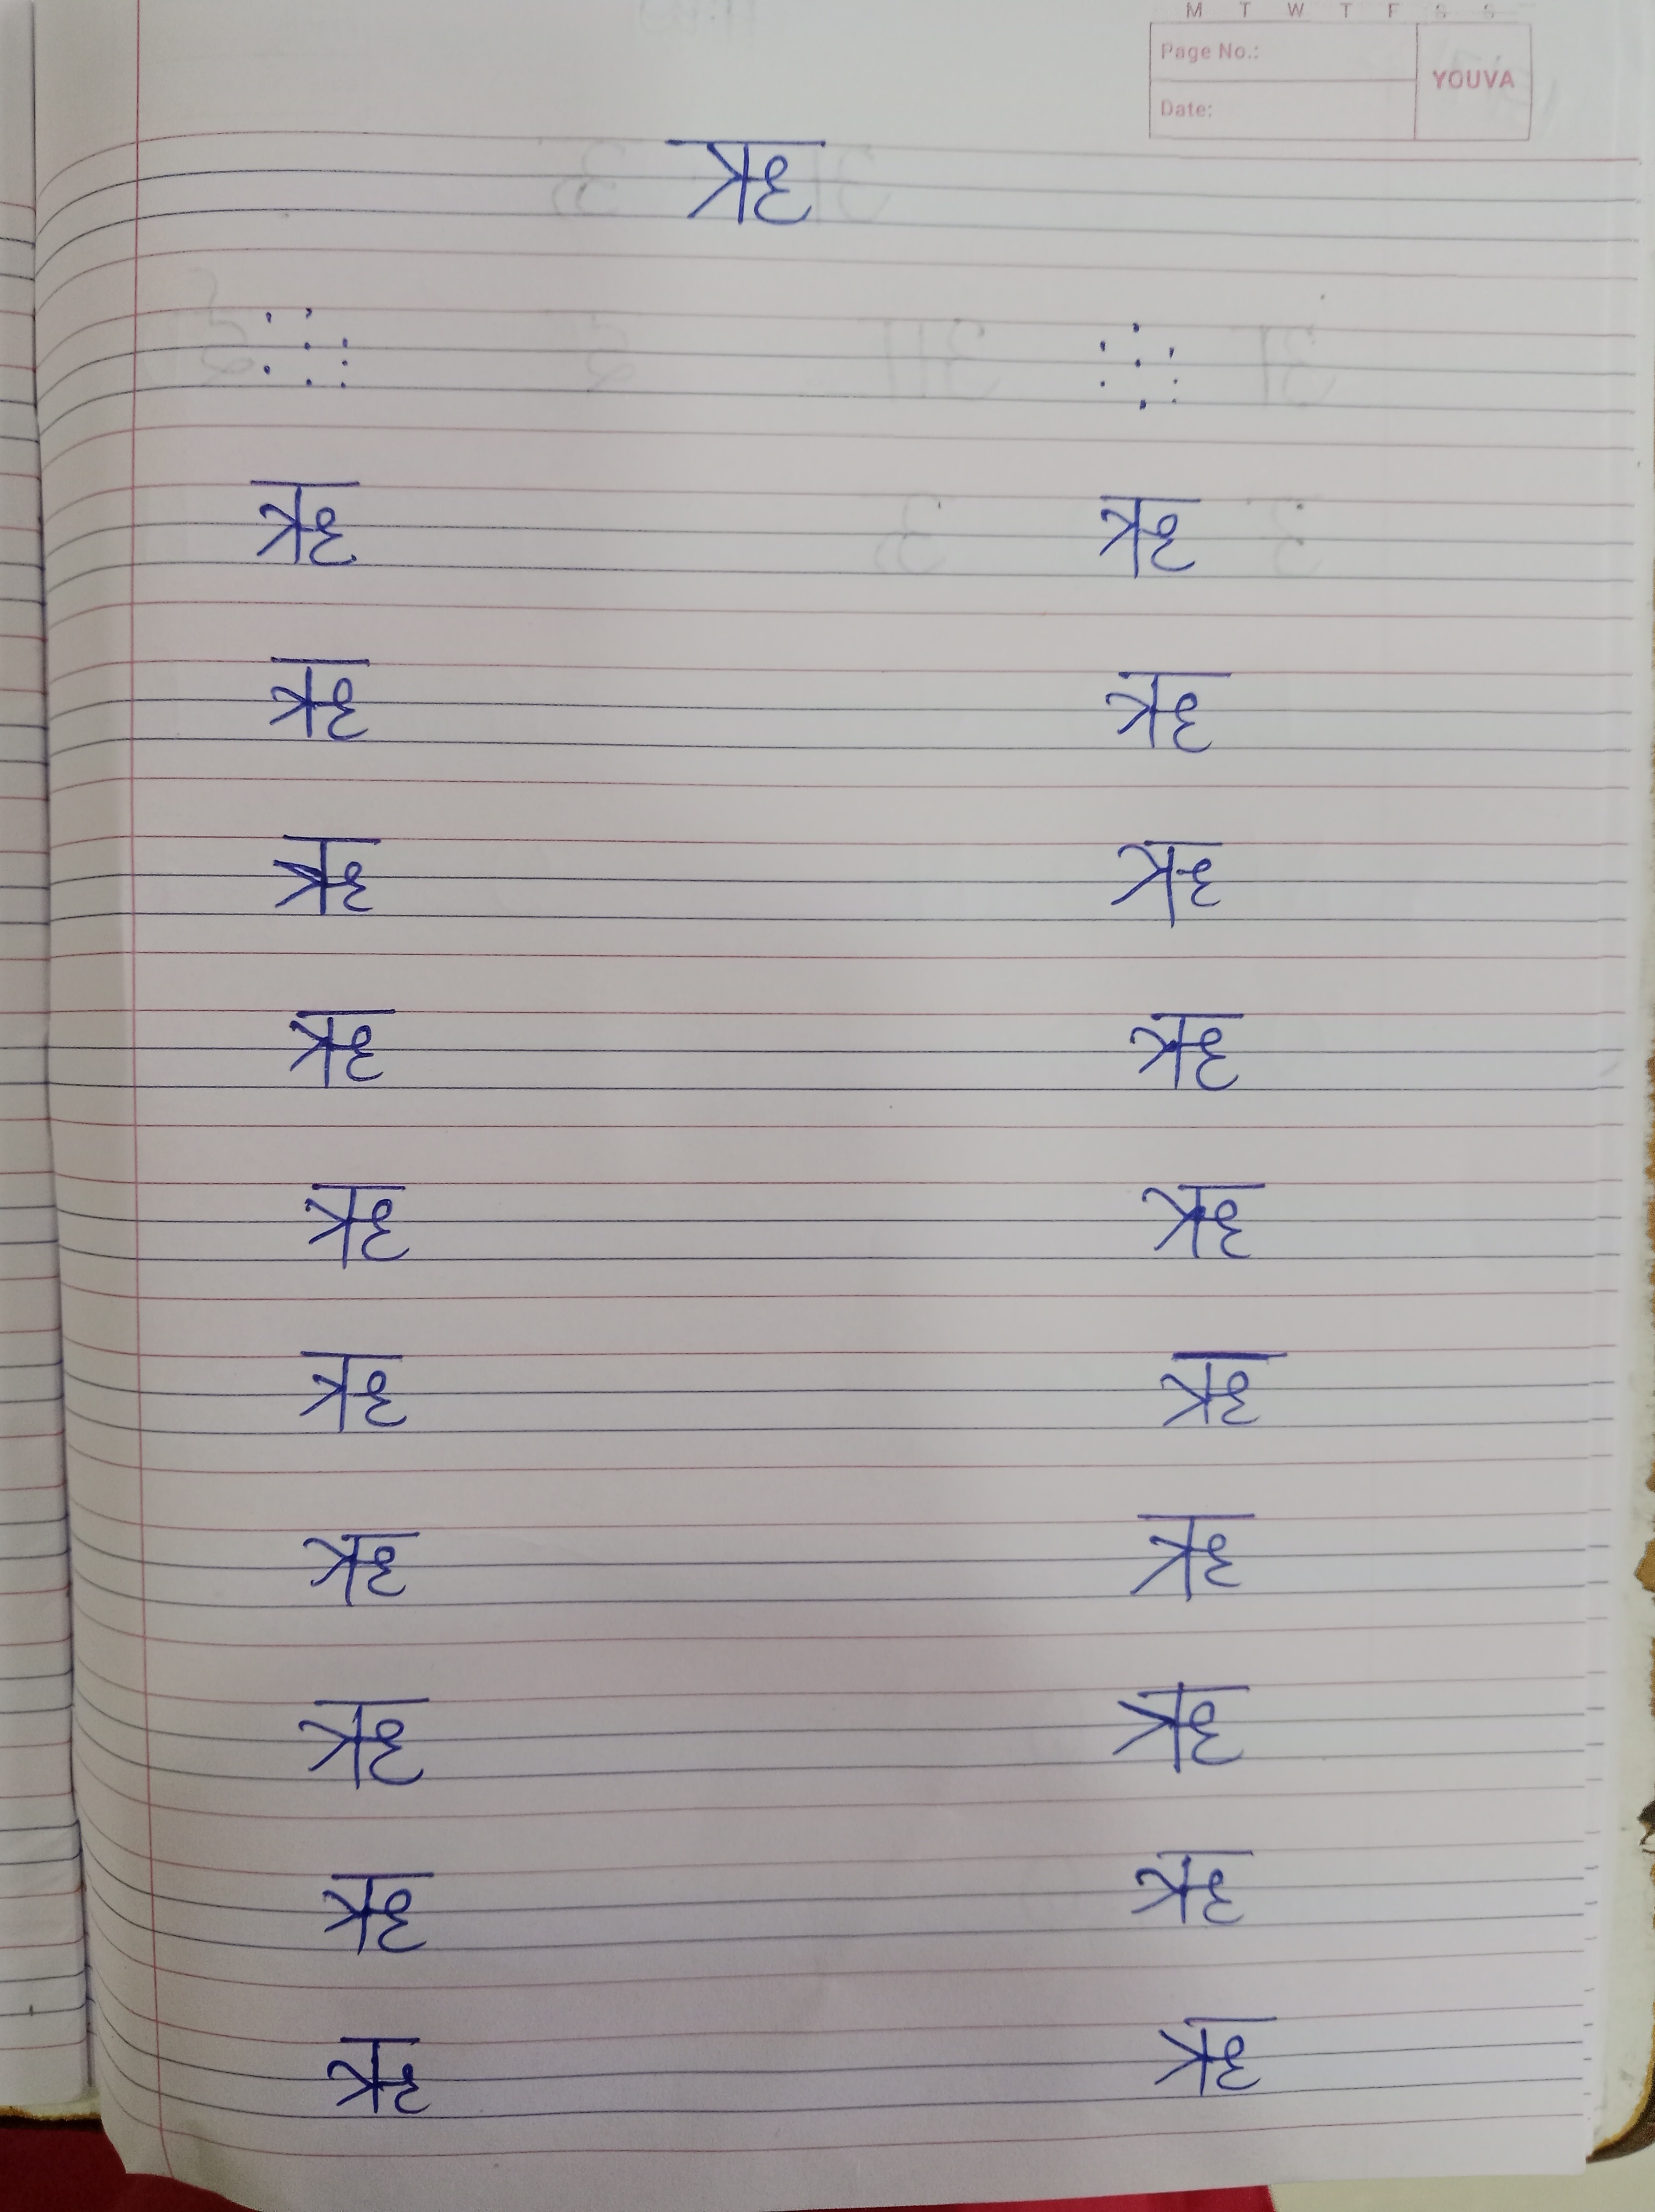 M T W T F S S
Page No.:
YOUVA
Date:
ऋ
ऋ ऋ
ऋ ऋ
ऋ ऋ
ऋ ऋ
ऋ ऋ
ऋ ऋ
ऋ ऋ
ऋ ऋ
ऋ ऋ
ऋ ऋ